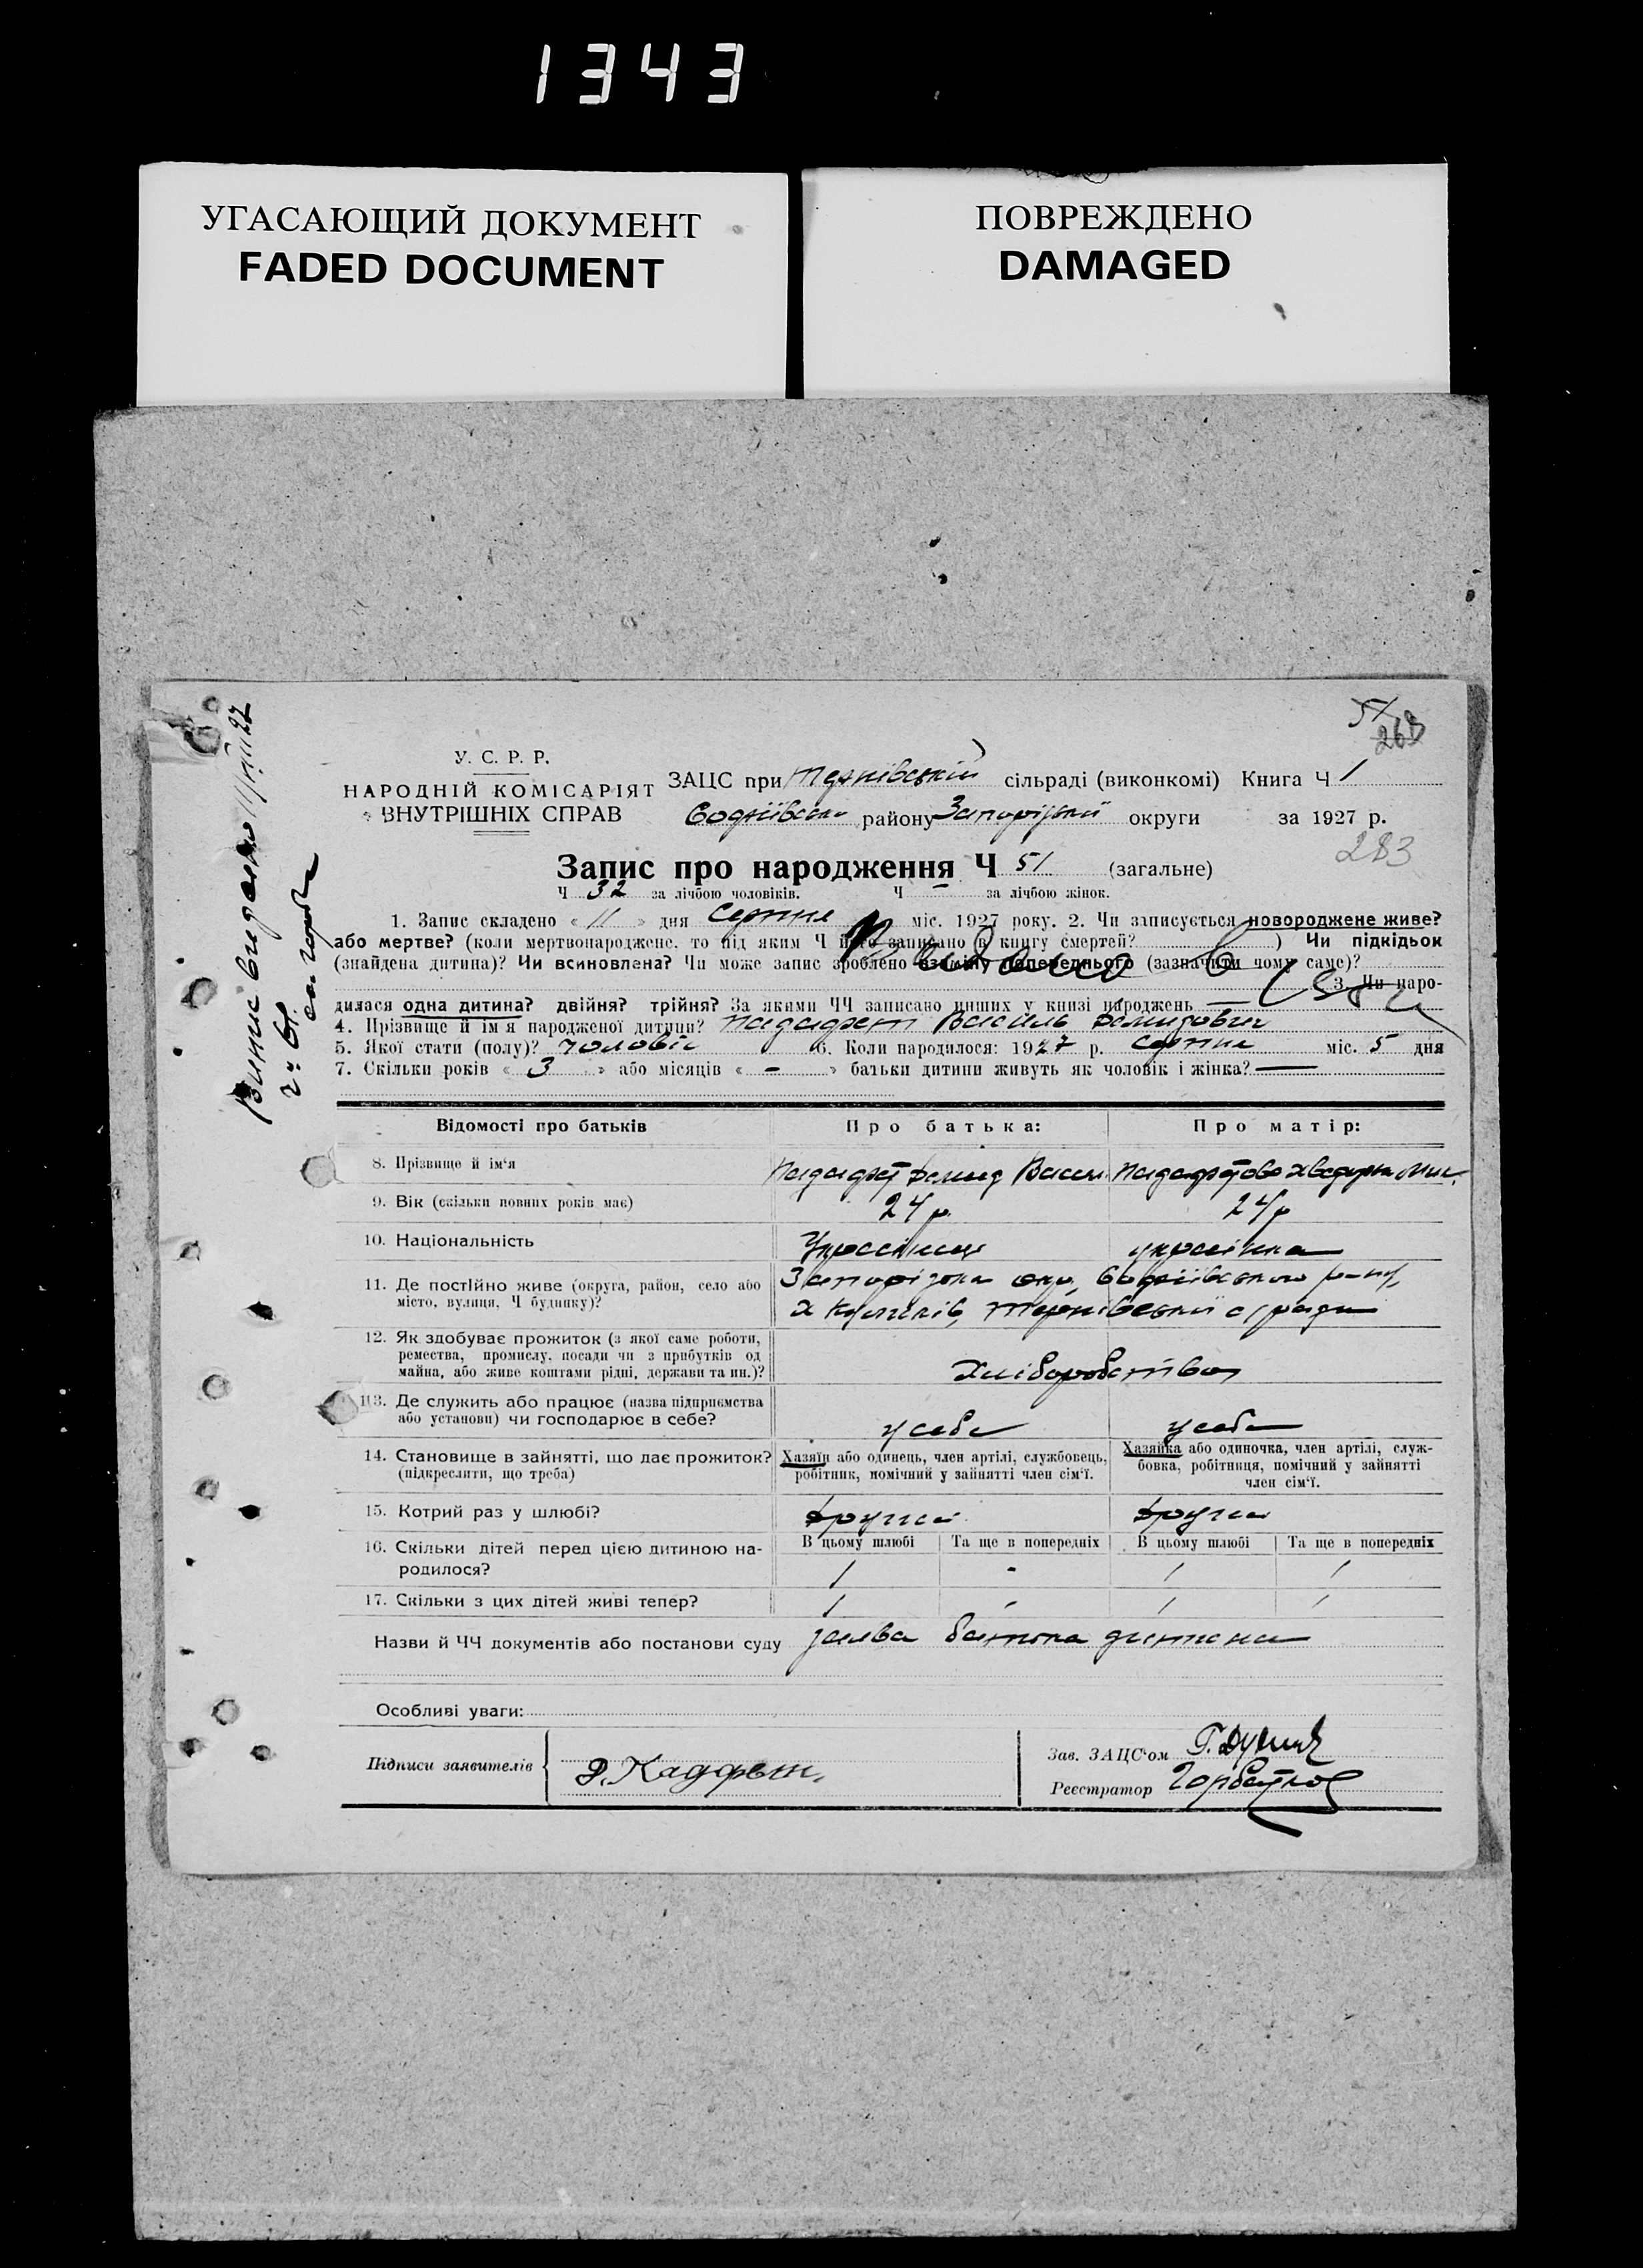 1343
УГАСАЮЩИЙ ДОКУМЕНТ
FADED DOCUMENT
ПОВРЕЖДЕНО
DAMAGED
51
263
У. С. Р. Р.
НАРОДНІЙ КОМІСАРІЯТ
ВНУТРІШНІХ СПРАВ
ЗАЦС при Тернівській сільраді (виконкомі) Книга Ч 1
району Запорізької округи за 1927 р.
283
Запис про народження Ч 51 (загальне)
Ч 32 за лічбою чоловіків. Ч - за лічбою жінок.
1. Запис складено « 11 » дня серпня міс. 1927 року. 2. Чи записується новороджене живе?
або мертве? (коли мертвонароджене, то під яким Ч його записано в книгу смертей? ) Чи підкідьок
(знайдена дитина)? Чи всиновлена? Чи може запис зроблено взаміну попереднього (зазначити чому саме)?
3. Чи наро-
дилася одна дитина? двійня? трійня? За якими ЧЧ записано инших у книзі народжень —
4. Прізвище й ім'я народженої дитини? Василь Демидович
5. Якої стати (полу)? чоловіч 6. Коли народилося: 1927 р. серпня міс. 5 дня
7. Скільки років « 3 » або місяців « - » батьки дитини живуть як чоловік і жінка? —
Відомості про батьків
Про батька:
Про матір:
8. Прізвище й ім'я
Демид Васил.
9. Вік (скільки повних років має)
24 р.
24 р
10. Національність
Українець
українка
11. Де постійно живе (округа, район, село або
місто, вулиця, Ч будинку)?
Запорізька окр.
Тернівської с/ради
12. Як здобуває прожиток (з якої саме роботи,
ремества, промислу, посади чи з прибутків од
майна, або живе коштами рідні, держави та ин.)?
Хліборобство
13. Де служить або працює (назва підприємства
або установи) чи господарює в себе?
у себе
у себе
14. Становище в зайнятті, що дає прожиток?
(підкреслити, що треба)
Хазяїн або одинець, член артілі, службовець,
робітник, помічний у зайнятті член сім'ї.
Хазяйка або одиночка, член артілі, служ-
бовка, робітниця, помічний у зайнятті
член сім'ї.
15. Котрий раз у шлюбі?
16. Скільки дітей перед цією дитиною на-
родилося?
В цьому шлюбі
Та ще в попередніх
В цьому шлюбі
Та ще в попередніх
1 - 1 1
17. Скільки з цих дітей живі тепер?
1 - 1 1
Назви й ЧЧ документів або постанови суду заява батька дитини
Особливі уваги:
Підписи заявителів
Зав. ЗАЦС'ом
Реєстратор
Випис видано 11/VIII 27